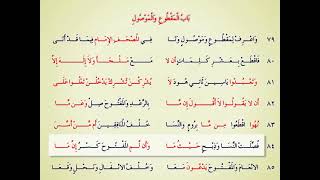 بَابُ الْمَقْطُوعِ وَالْمَوْصُولِ
٧٩ وَاعْرِفْ لِمَقْطُوعٍ وَمَوْصُولٍ وَتَا فِي الْمُصْحَفِ الْإِمَامِ فِيمَا قَدْ أَتَى
٨٠ فَاقْطَعْ بِعَشْرِ كَلِمَاتٍ أَن لَّا مَعْ مَلْجَأٍ وَلَا إِلَٰهَ إِلَّا
٨١ وَتَعْبُدُوا يَاسِينَ ثَانِي هُودَ لَا يُشْرِكْنَ تُشْرِكْ يَدْخُلَنْ تَعْلُوا عَلَى
٨٢ أَن لَّا يَقُولُوا لَا أَقُولَ إِن مَّا بِالرَّعْدِ وَالْمَفْتُوحَ صِلْ وَعَن مَّا
٨٣ نُهُوا اقْطَعُوا مِن مَّا بِرُومٍ وَالنِّسَا خُلْفُ الْمُنَافِقِينَ أَم مَّنْ أَسَّسَ
٨٤ فُصِّلَتِ النِّسَا وَذِبْحٍ حَيْثُ مَا وَأَن لَّمِ الْمَفْتُوحَ كَسْرُ إِنَّ مَا
٨٥ الَانْعَامِ وَالْمَفْتُوحَ يَدْعُونَ مَعَا وَخُلْفُ الَانْفَالِ وَنَحْلٍ وَقَعَا